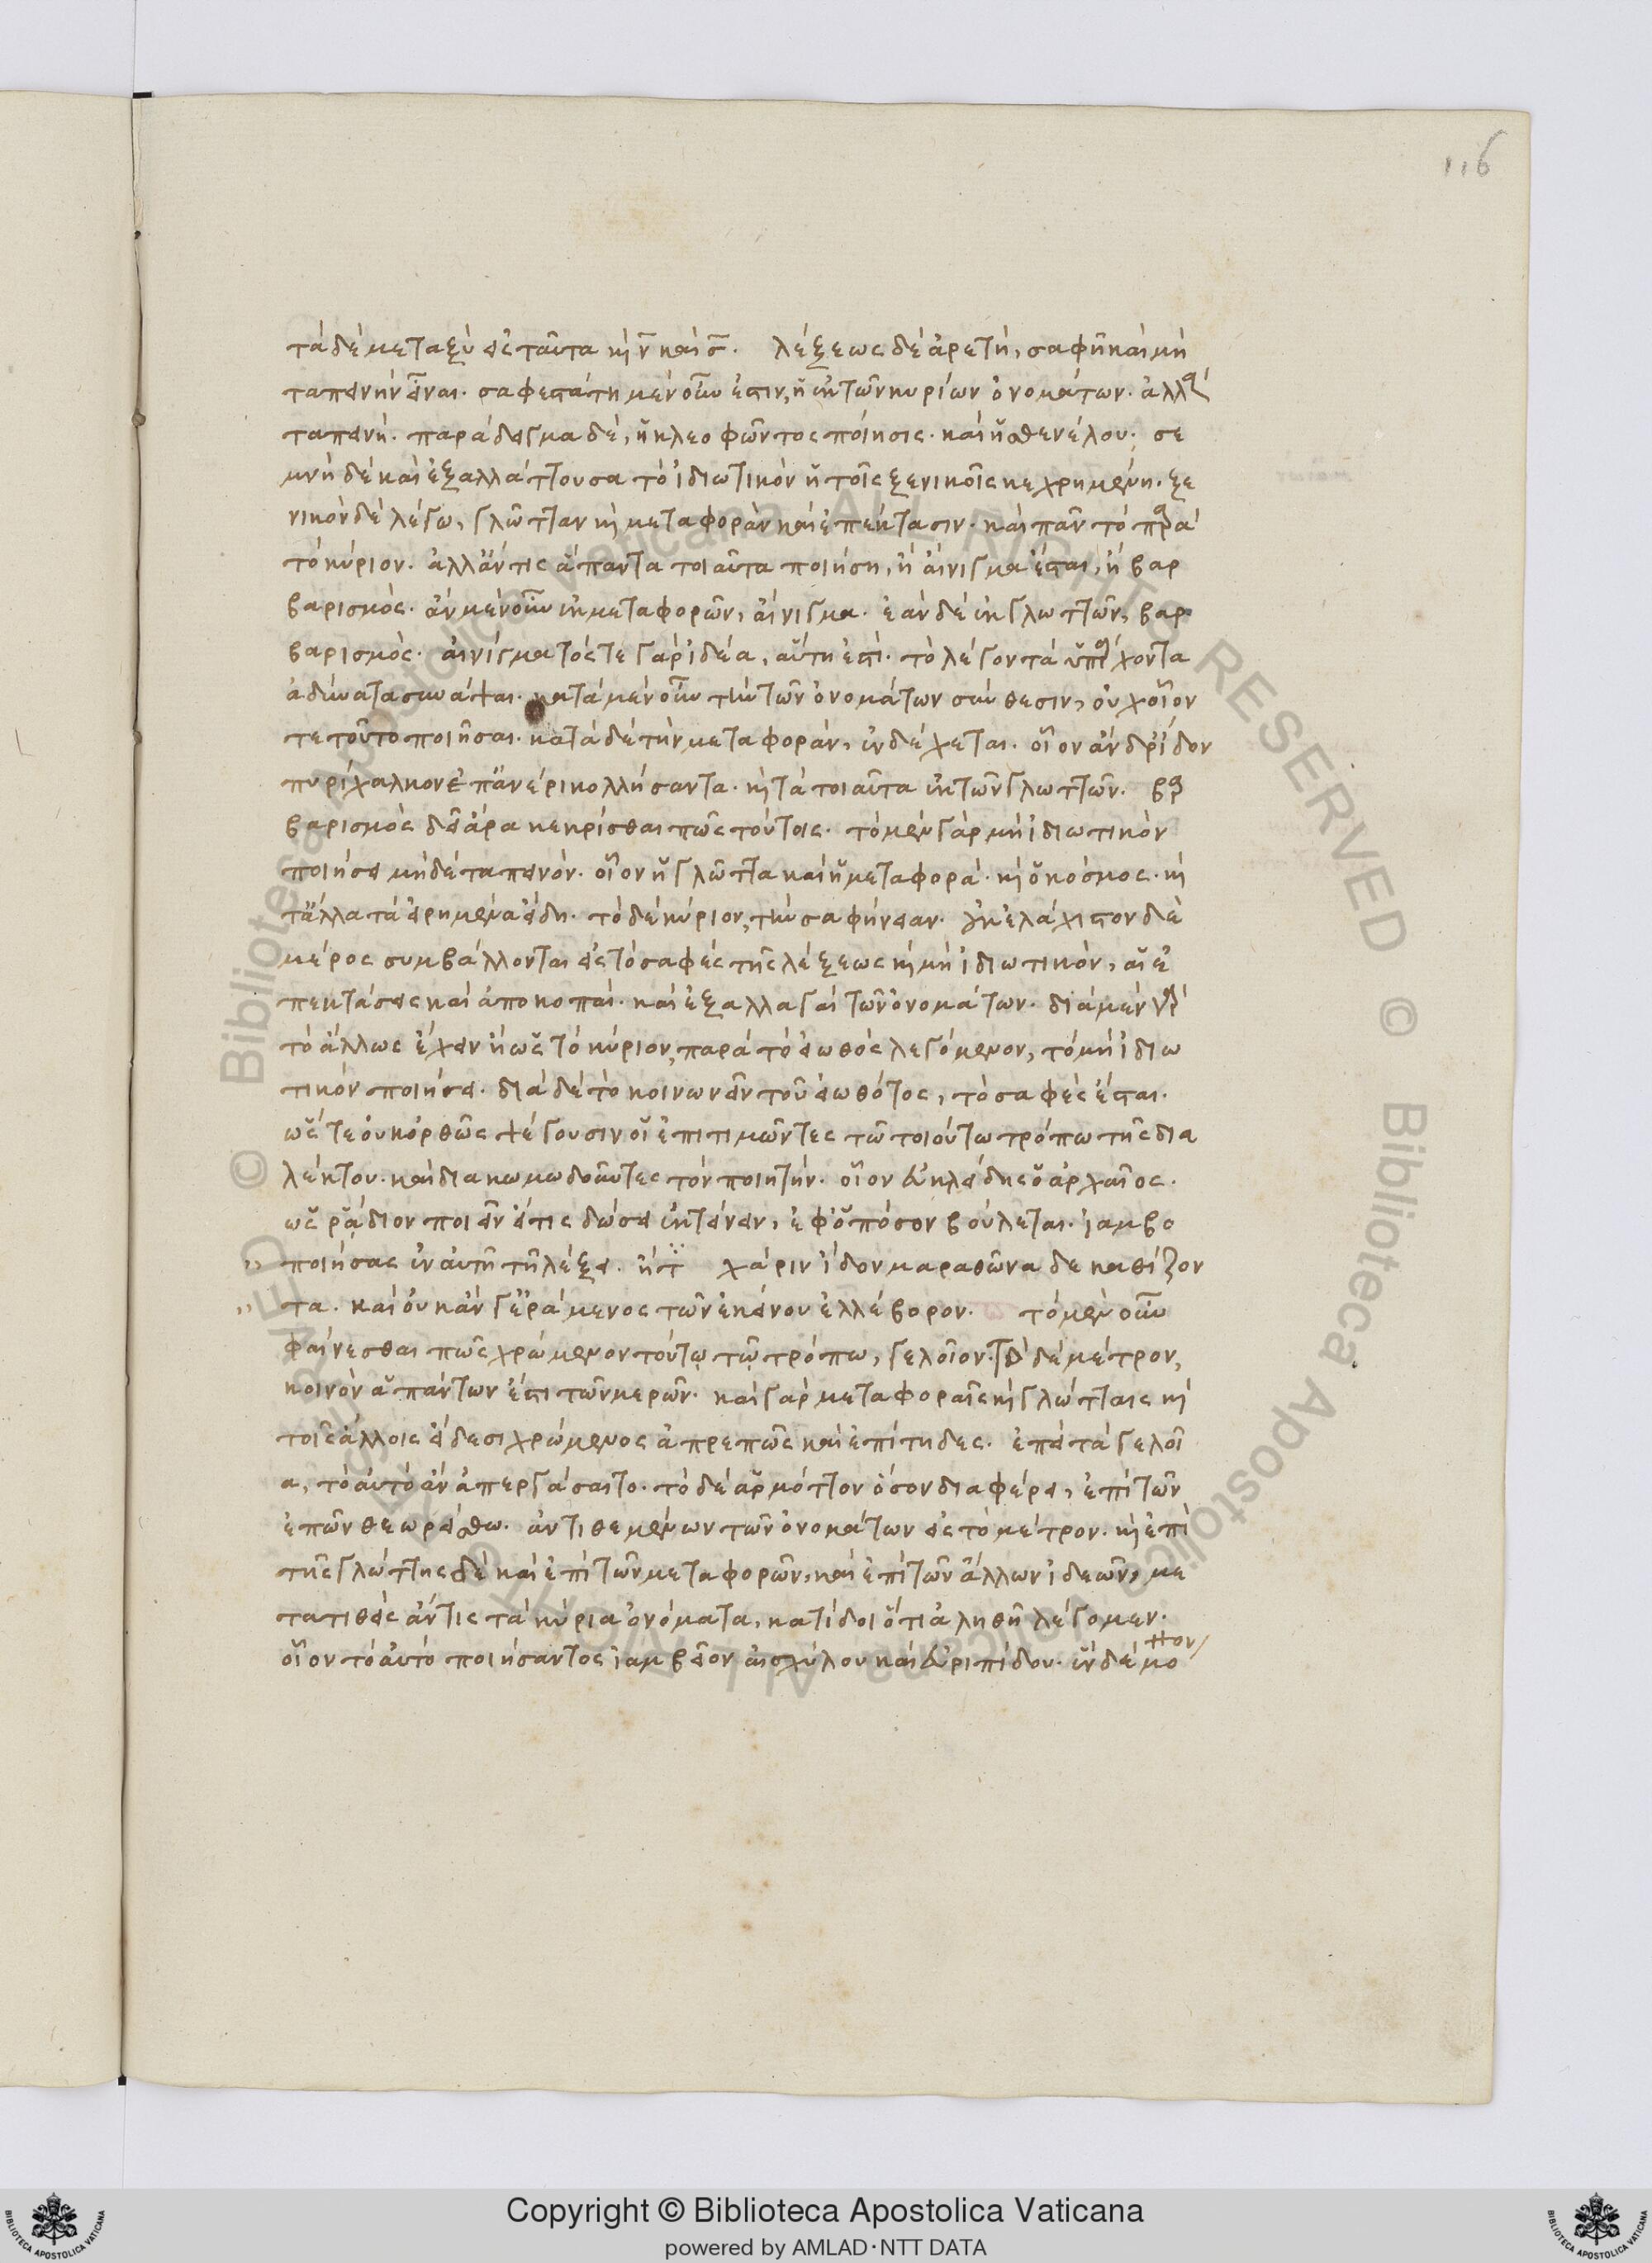 116
τὰ δὲ μεταξὺ εἰς ταῦτα κὶ ν̄ καὶ σ̄. λέξεως δὲ ἀρετὴ, σαφῆ καὶ μὴ
ταπεινὴν εἶναι. σαφεστάτη μὲν οὖν ἐστιν, ἡ ἐκ τῶν κυρίων ὀνομάτων. ἀλλὰ
ταπεινή. παράδειγμα δὲ, ἡ κλεοφῶντος ποίησις. καὶ ἡ σθενέλου. σε
μνὴ δὲ καὶ ἐξαλλάττουσα τὸ ἰδιωτικὸν ἡ τοῖς ξενικοῖς κεχρημένη. ξε
νικὸν δὲ λέγω, γλῶτταν κὶ μεταφορὰν καὶ ἐπέκτασιν. καὶ πᾶν τὸ παρὰ
τὸ κύριον. ἀλλ' ἄν τις ἅπαντα τοιαῦτα ποιήση, ἢ αἴνιγμα ἔσται, ἢ βαρ
βαρισμός. ἂν μὲν οὖν ἐκ μεταφορῶν, αἴνιγμα. ἐὰν δὲ ἐκ γλωττῶν, βαρ
βαρισμὸς. αἰνίγματός τε γὰρ ἰδέα, αὕτη ἐστί. τὸ λέγοντα ὑπάρχοντα
ἀδύνατα συνάψαι. κατὰ μὲν οὖν τὴν τῶν ὀνομάτων σύνθεσιν, οὐχ οἷον
τε τοῦτο ποιῆσαι. κατὰ δὲ τὴν μεταφορὰν, ἐνδέχεται. οἷον ἄνδρ' ἴδον
πυρίχαλκον ἐπ' ἀνέρι κολλήσαντα. κὶ τὰ τοιαῦτα ἐκ τῶν γλωττῶν. βαρ
βαρισμὸς δεῖ ἄρα κεκρίσθαι πως τούτοις. τὸ μὲν γὰρ μὴ ἰδιωτικὸν
ποιήσει μηδὲ ταπεινόν. οἷον ἡ γλῶττα καὶ ἡ μεταφορά. κὶ ὁ κόσμος. κὶ
τἄλλα τὰ εἰρημένα εἴδη. τὸ δὲ κύριον, τὴν σαφήνειαν. οὐκ ἐλάχιστον δὲ
μέρος συμβάλλονται εἰς τὸ σαφὲς τῆς λέξεως κὶ μὴ ἰδιωτικόν, αἱ ἐ
πεκτάσεις καὶ ἀποκοπαί. καὶ ἐξαλλαγαὶ τῶν ὀνομάτων. διὰ μὲν γὰρ
τὸ ἄλλως ἔχειν ἢ ὡς τὸ κύριον, παρὰ τὸ εἰωθὸς λεγόμενον, τὸ μὴ ἰδιω
τικὸν ποιήσει. διὰ δὲ τὸ κοινωνεῖν τοῦ εἰωθότος, τὸ σαφὲς ἔσται.
ὥστε οὐκ ὀρθῶς ψέγουσιν οἱ ἐπιτιμῶντες τῶ τοιούτω τρόπω τῆς δια
λέκτου. καὶ διακωμωδοῦντες τὸν ποιητήν. οἷον εὐκλείδης ὁ ἀρχαῖος.
ὡς ῥάδιον ποιεῖν εἴ τις δώσει ἐκτείνειν, ἐφ' ὁπόσον βούλεται. ἰαμβο
ποιήσας ἐν αὐτῆ τῆ λέξει. ἤτ χάριν ἴδον μαραθῶνα δε καθίζον
τα. καὶ οὐκ ἂν γεράμενος τῶν ἐκείνου ἐλλέβορον. τὸ μὲν οὖν
φαίνεσθαι πως χρώμενον τούτῳ τῷ τρόπω, γελοῖον. τὸ δὲ μέτρον,
κοινὸν ἁπάντων ἐστι τῶν μερῶν. καὶ γὰρ μεταφοραῖς κὶ γλώτταις κὶ
τοῖς ἄλλοις εἴδεσι χρώμενος ἀπρεπῶς καὶ ἐπίτηδες. ἐπεὶ τὰ γελοῖ
α, τὸ αὐτὸ ἂν ἀπεργάσαιτο. τὸ δὲ ἁρμόττον ὅσον διαφέρει, ἐπὶ τῶν
ἐπῶν θεωρείσθω. ἀντιθεμένων τῶν ὀνομάτων εἰς τὸ μέτρον. κὶ ἐπὶ
τῆς γλώττης δὲ καὶ ἐπὶ τῶν μεταφορῶν, καὶ ἐπὶ τῶν ἄλλων ἰδεῶν, με
τατιθεὶς ἄν τις τὰ κύρια ὀνόματα, κατίδοι ὅτι ἀληθῆ λέγομεν.
οἷον τὸ αὐτὸ ποιήσαντος ἰαμβεῖον αἰσχύλου καὶ εὐριπίδου. ἓν δὲ μο
Copyright © Biblioteca Apostolica Vaticana
powered by AMLAD·NTT DATA